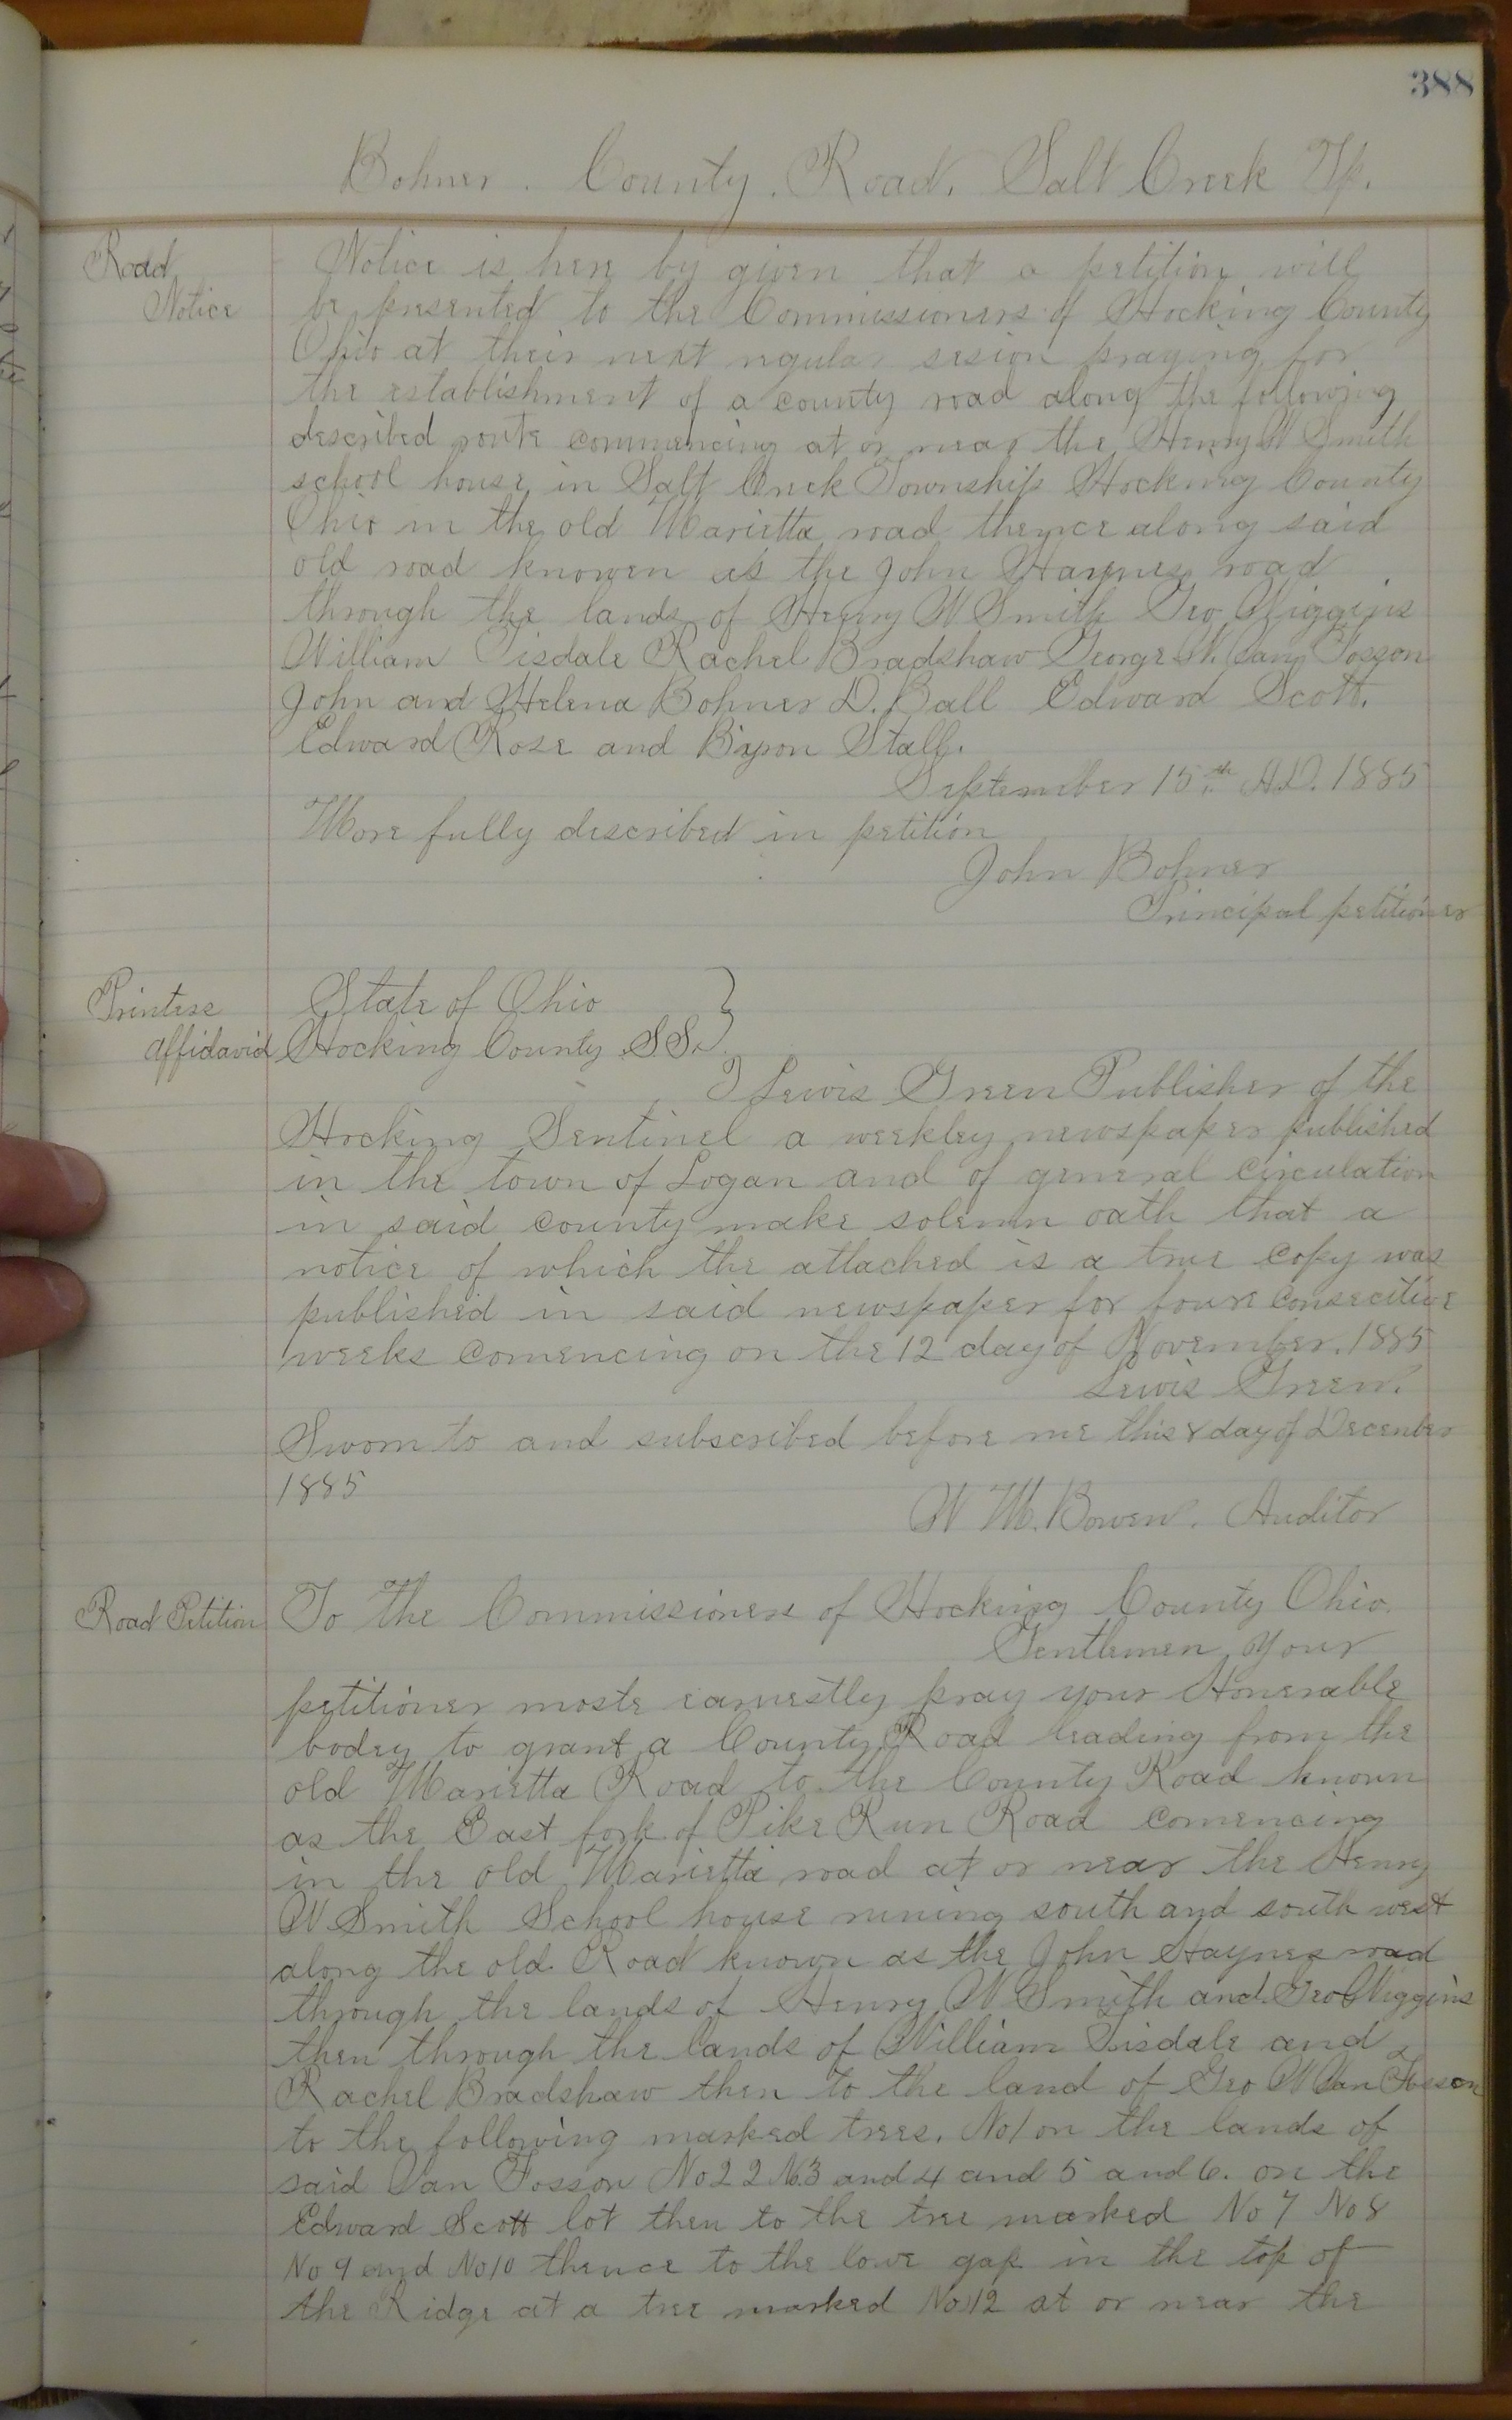 388
Bohner. County. Road. Salt Creek Tp.
Road Notice
Notice is here by given that a petition will
be presented to the Commissioners of Hocking County
Ohio at their next regular sesion praying for
the establishment of a county road along the following
described route commencing at or near the Henry W Smith
school house in Salt Creek Township Hocking County
Ohio in the old Marietta road thence along said
old road knowen as the John Haynes road
through the lands of Henry W Smith Geo Wiggins
William Tisdale Rachel Bradshaw George W. Van Fosson
John and Helena Bohner D. Ball Edward Scott.
Edward Rose and Stall.
September 15th A.D. 1885
More fully described in petition
John Bohner
Principal petitioner
Printers affidavid
State of Ohio
Hocking County S.S.
I Lewis Green Publisher of the
Hocking Sentinel a weekley newspaper published
in the town of Logan and of general circulation
in said county make solemn oath that a
notice of which the attached is a true copy was
published in said newspaper for foure consecitive
weeks comencing on the 12 day of November. 1885
Lewis Green.
Sworn to and subscribed before me this 8 day of December
1885
W M. Bowen. Auditor
Road Petition
To the Commissioners of Hocking County Ohio.
Gentlemen your
petitioner moste earnestly pray your Honerable
bodey to grant a County Road leading from the
old Marietta Road to the County Road known
as the East fork of Pike Run Road comencing
in the old Marietta road at or near the Henry
W Smith School house runing south and south west
along the old Road known as the John Haynes road
through the lands of Henry W Smith and Geo Wiggins
then through the lands of William Tisdale and
Rachel Bradshaw then to the land of Geo W Van Fosson
to the following marked trees. No 1 on the lands of
said Van Fosson No 2 2 No 3 and 4 and 5 and 6. on the
Edward Scott lot then to the tree marked No 7 No 8
No 9 and No 10 thence to the lowe gap in the top of
the Ridge at a tree marked No 12 at or near the